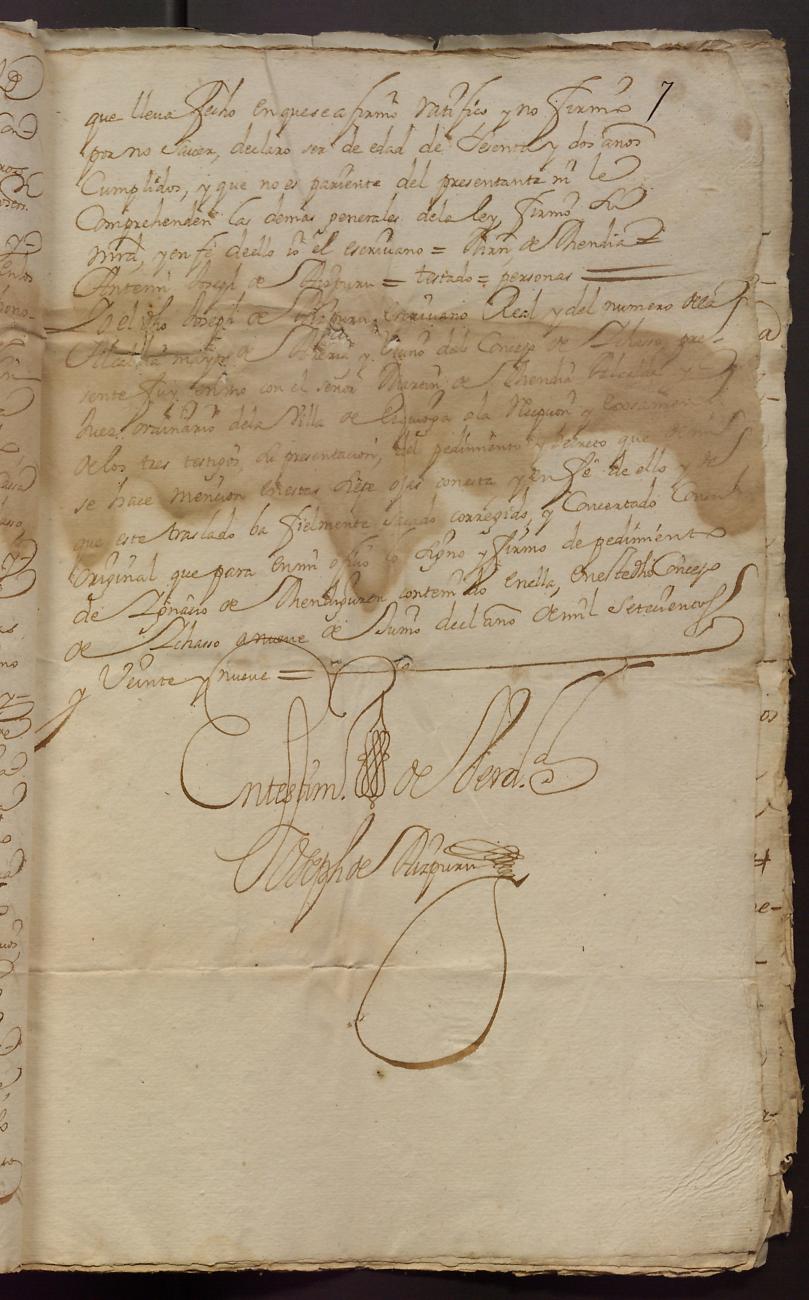 7
que lleva fecho en que se afirmó ratifico y no firmó
por no saver, declaro ser de edad de sesenta y dos años
Cumplidos, y que no es pariente del presentante ni le
Comprehenden las demas generales dela ley, firmó su
mrd, y en fe de ello io el escrivano = Marn de Mendia
Antemi Joseph de Aizpuru = testado = personas
Yo el dho Joseph de Aizpuru escrivano Real y del numero dela
Alcaldia mayor de Areria y del Concejo de Ichasso, pre-
sente fui enuno con el señor Martin de Mendia Alcalde y
Juez ordinario dela Villa de Ezquioga ala Recepcion y examen
de los tres testigos, su presentacion, del pedimento y decreto que
se hace mencion en estas siete ojas con esta y en fe de ello y de
que este traslado ba fielmente sacado corregido, y Concertado Con
Original que para en mi ofizio lo signo y firmo de pedimento
de Ignacio de Mendiguren contenido en ella, en este dho Concejo
de Ichasso a nueve de Junio del año de mil setecientos
y Veinte y nueve =
En testim. de Verd.
Joseph de Aizpuru